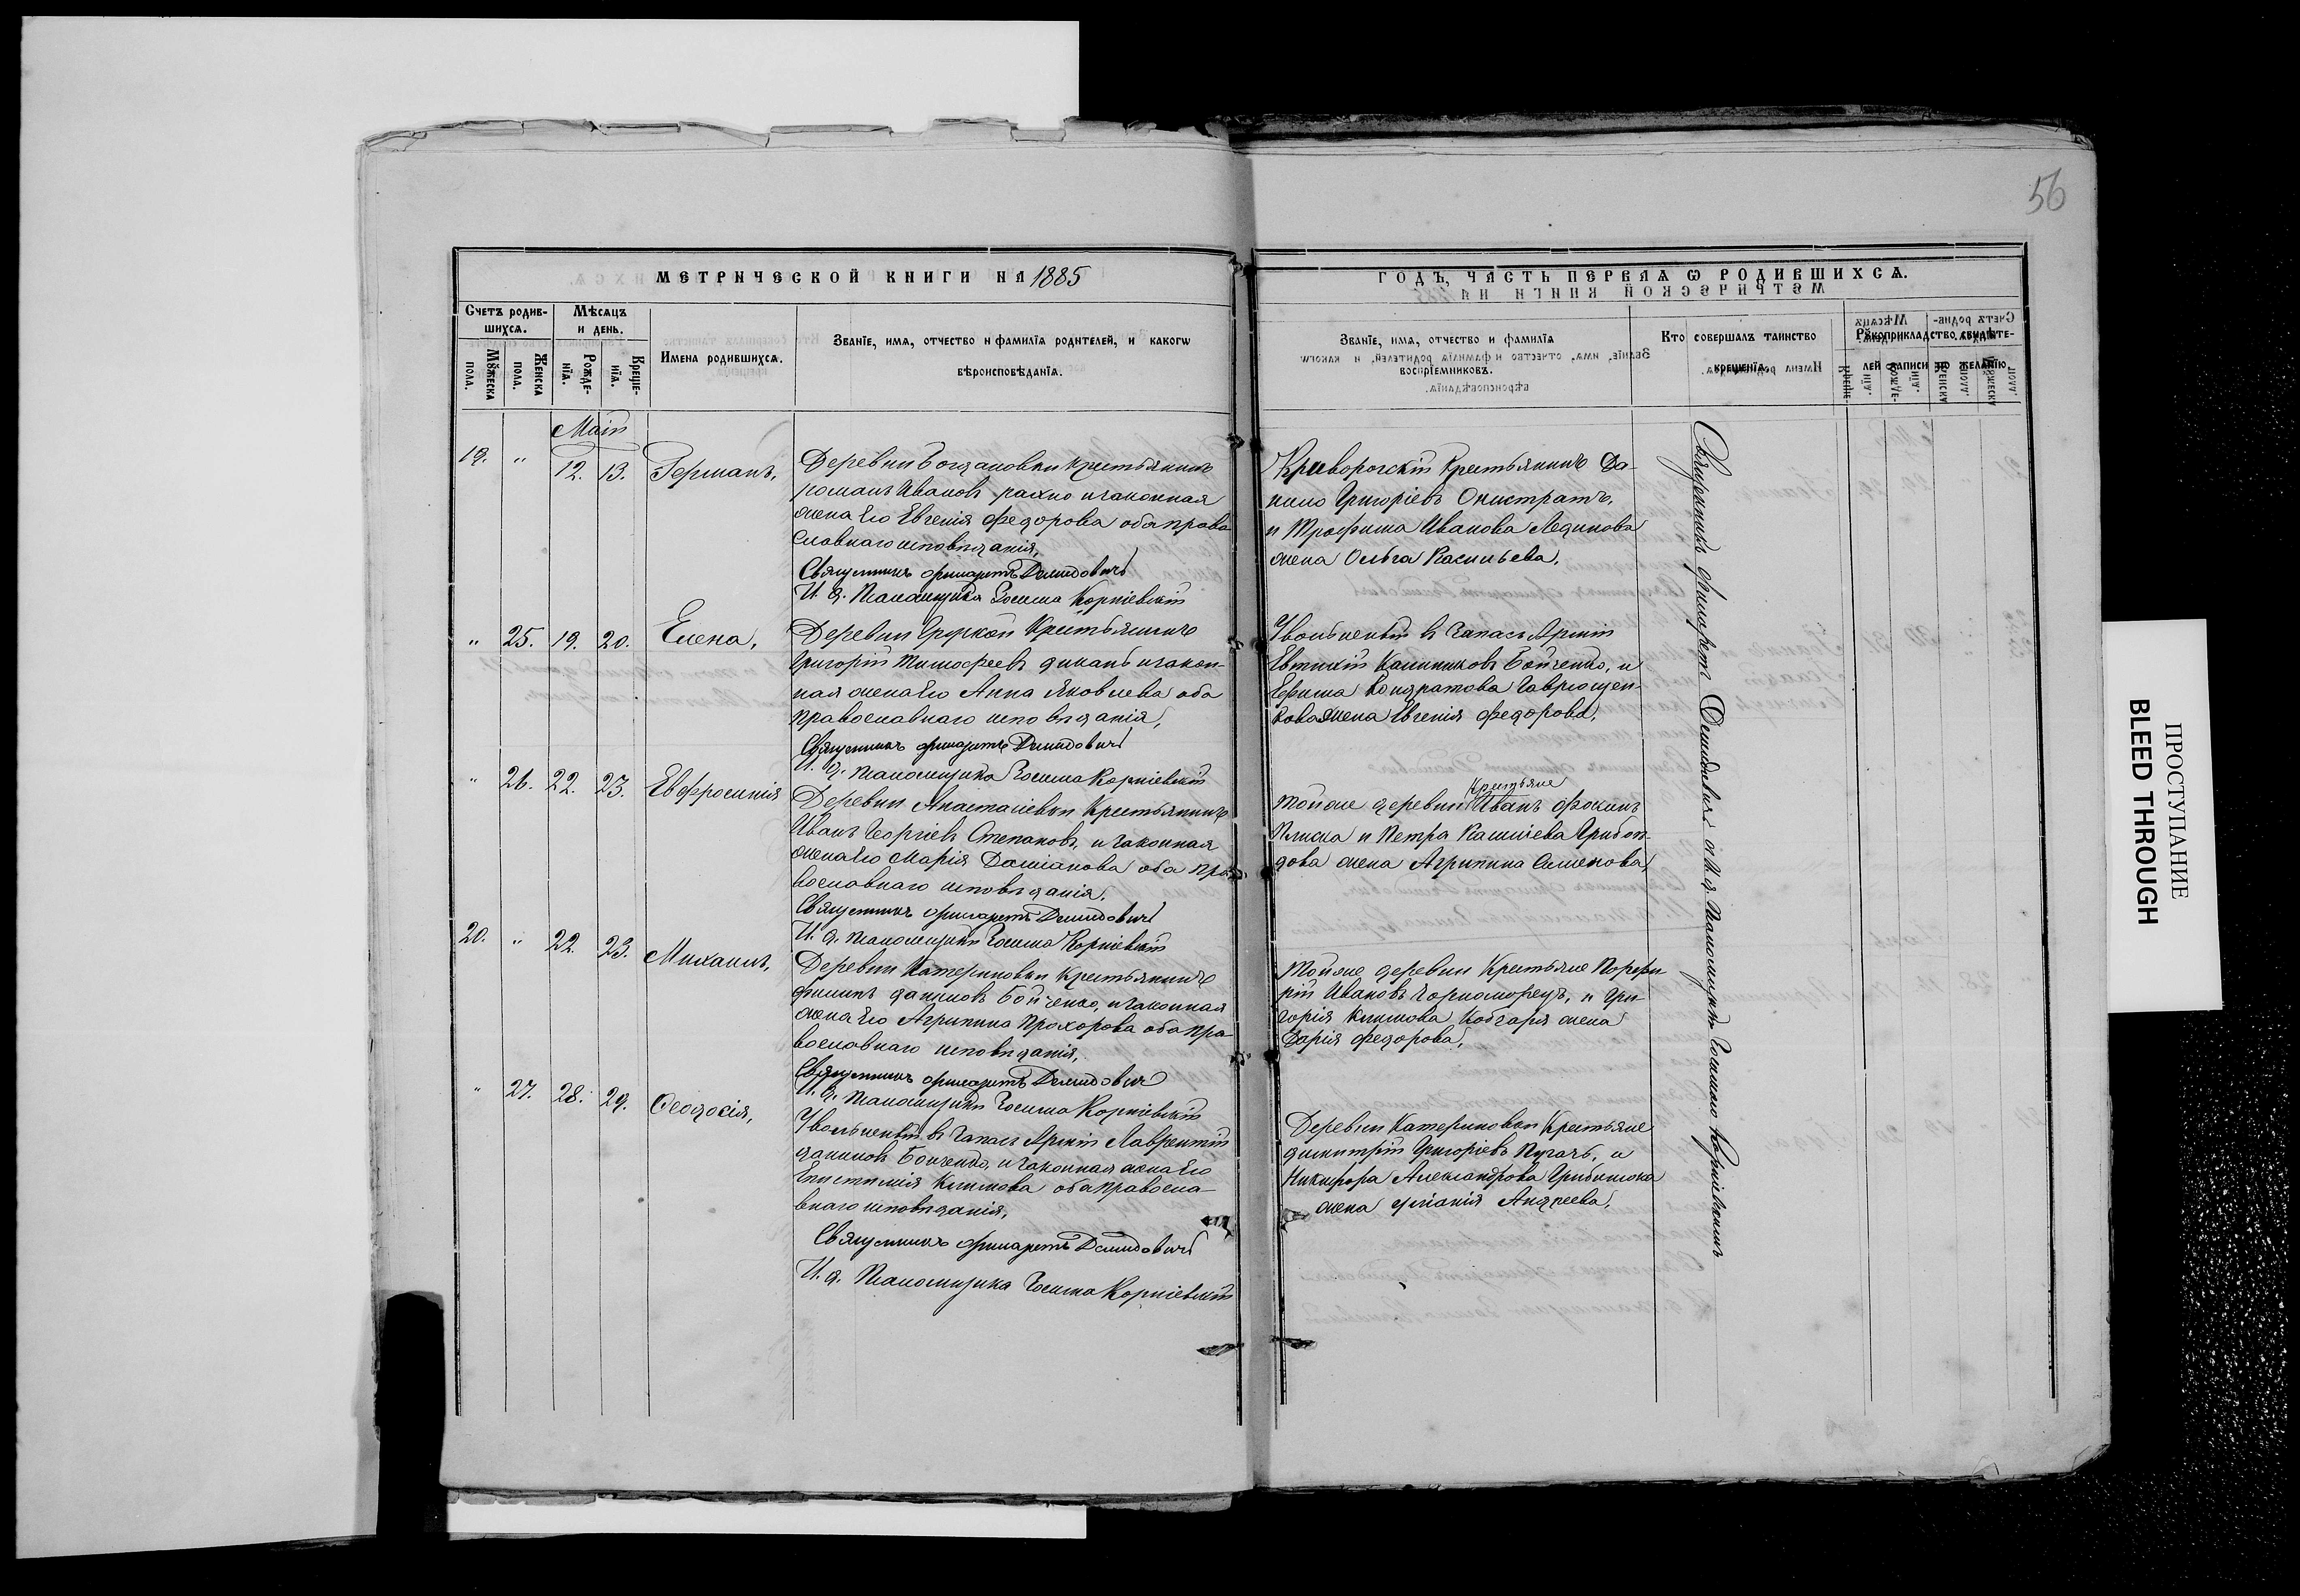 56
МЕТРИЧЕСКОЙ КНИГИ НА 1885
ГОДЪ, ЧАСТЬ ПЕРВАЯ Ѡ РОДИВШИХСѦ.
Счетъ родив-
шихсѧ.
Мѣсѧцъ
и день.
Мꙋжеска
пола.
Женска
пола.
Рожде-
нїѧ.
Креще-
нїѧ.
Имена родившихсѧ.
Званїе, имѧ, отчество и фамилїѧ родителей, и какогѡ
вѣроисповѣданїѧ.
Званїе, имѧ, отчество и фамилїѧ
воспрїемниковъ.
Кто совершалъ таинство
крещенїѧ.
Рꙋкоприкладство свидѣте-
лей записи по желанїю.
Май
19. " 12. 13. Германъ,
Деревни Богдановки крестьянинъ
романъ Ивановъ рахно и законная
жена Его Евгенія Федорова оба право
славнаго исповѣданія,
Священникъ Филаретъ Демидовичъ
И. д. Псаломщика Зосима Корніевскій
Криворогскій Крестьянинъ Да-
нило Григоріевъ Онистратъ,
и Трофима Иванова Ледникова
жена Ольга Касильева,
" 25. 19. 20. Елена,
Деревни Крестьянинъ
Григорій Тимофеевъ диканъ и закон-
ная жена Его Анна Яковлева оба
православнаго исповѣданія,
Священникъ Филаретъ Демидовичъ
И. д. Псаломщика Зосима Корніевскій
Уволенный въ Запасъ Арміи
Евтихій Калиниковъ Бойченко, и
Ефима Кондратова Гаврющен-
кова жена Евгенія Федорова,
" 26. 22. 23. Евфросинія
Деревни Анастасіевки Крестьянинъ
Иванъ Георгіевъ Степановъ, и законная
жена Его Марія Даміанова оба пра
вославнаго исповѣданія,
Священникъ Филаретъ Демидовичъ
И. д. Псаломщика Зосима Корніевскій
Крестьяне
тойже деревни Иванъ Фокинъ
Плиска и Петра Кашиева Грибов-
дова жена Агрипина Симонова,
20. " 22. 23. Михаилъ,
Деревни Катериновки Крестьянинъ
Филипъ даниловъ Бойченко, и законная
жена Его Агрипина Прохорова оба пра-
вославнаго исповѣданія,
Священникъ Филаретъ Демидовичъ
И. д. Псаломщика Зосима Корніевскій
тойже деревни Крестьяне Порфи
рій Ивановъ Чорноморецъ, и Гри-
горія Климова Кобзаря жена
Дарія Федорова,
" 27. 28. 29. Ѳеодосія,
Уволенный въ Запасъ Арміи Лаврентій
даниловъ Бойченко, и законная жена Его
Епистимія Климова оба правосла-
внаго исповѣданія,
Священникъ Филаретъ Демидовичъ
И. д. Псаломщика Зосима Корніевскій
Деревни Катериновки Крестьяне
димитрій Григоріевъ Пугачъ, и
Никифора Александрова Грибинюка
жена уліанія Андреева,
Священникъ Филаретъ Демидовичъ съ И. д. Псаломщика Зосимою Корніевскимъ
ПРОСТУПАНИЕ
BLEED THROUGH